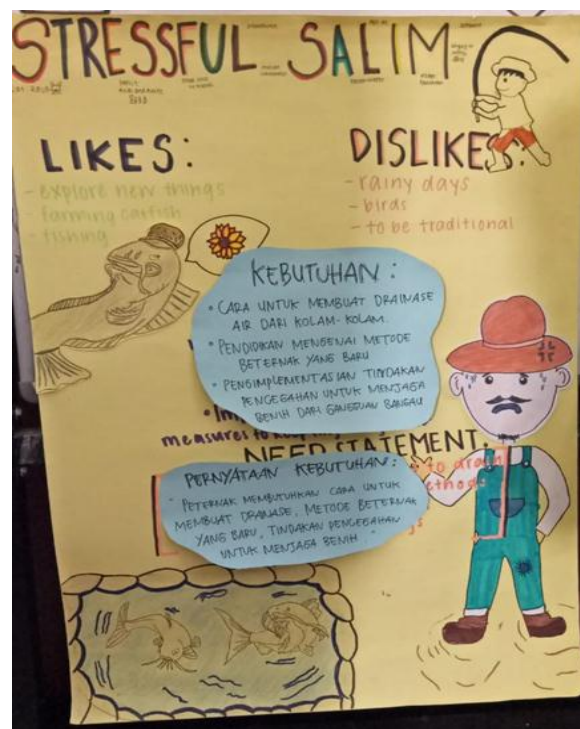 STRESSFUL SALIM
LIKES:
- explore new things
- farming catfish
- fishing
DISLIKES:
- rainy days
- birds
- to be traditional
KEBUTUHAN :
• CARA UNTUK MEMBUAT DRAINASE
AIR DARI KOLAM-KOLAM.
• PENDIDIKAN MENGENAI METODE
BETERNAK YANG BARU
• PENGIMPLEMENTASIAN TINDAKAN
PENCEGAHAN UNTUK MENJAGA
BENIH DARI GANGGUAN BANGAU
measures to
NEED STATEMENT:
to drain
PERNYATAAN KEBUTUHAN :
PETERNAK MEMBUTUHKAN CARA UNTUK
MEMBUAT DRAINASE, METODE BETERNAK
YANG BARU, TINDAKAN PENCEGAHAN
UNTUK MENJAGA BENIH